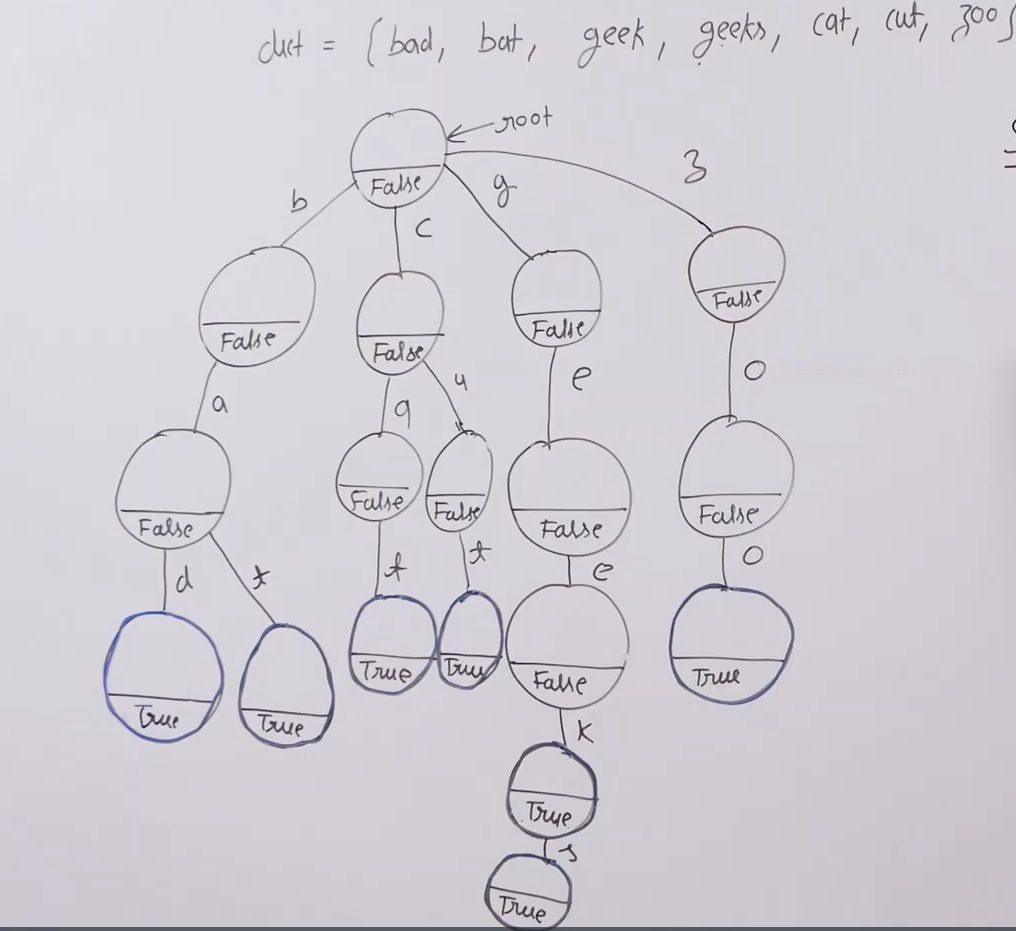 dict = { bad, bat, geek, geeks, cat, cut, zoo }
root
False
b
c
g
z
False
False
False
False
a
a
u
e
o
False
False
False
False
False
d
t
t
t
e
o
True
True
True
True
False
True
k
True
s
True